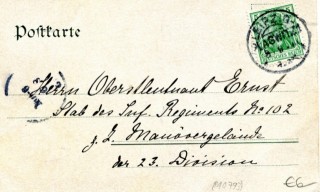 Postkarte
Herrn Oberstleutnant Ernst
Stab des Inf. Regiments No 102
z. Z. Manövergelände
der 23. Division